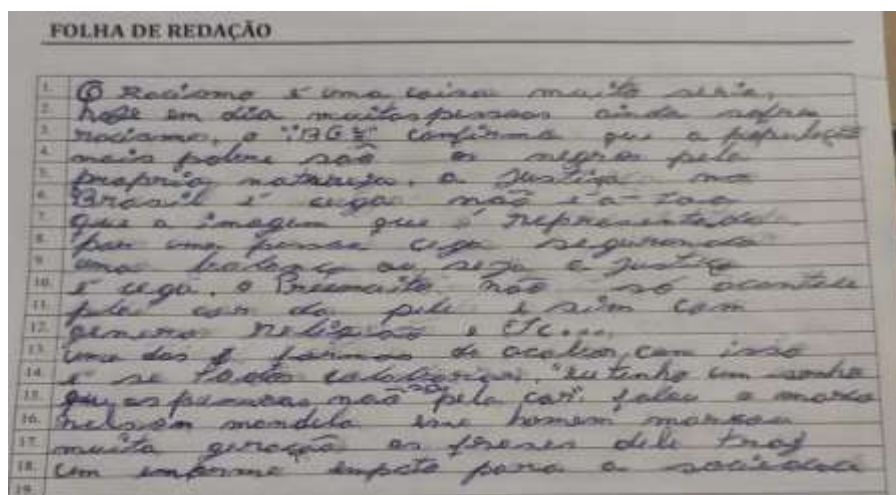 FOLHA DE REDAÇÃO
1. O Racismo é uma coisa muito seria,
2. hoje em dia muitas pessoas ainda sofrem
3. racismo, o "IBGE" confirma que a população
4. mais pobre são os negros pela
5. propria natureza. a Justiça no
6. Brasil é cega não é a-toa
7. que a imagem que é representada
8. por uma pessoa cega segurando
9. uma balança ou seja a Justiça
10. é cega. o Preconceito não só acontece
11. pela cor da pele e sim com
12. genero religião e Etc...
13. uma das formas de acabar com isso
14. é se todos "eu tenho um sonho
15. que as pessoas não pela cor" falou o
16. nelson mandela esse homem marcou
17. muita geração as frases dele traz
18. um enorme para a sociedade
19.